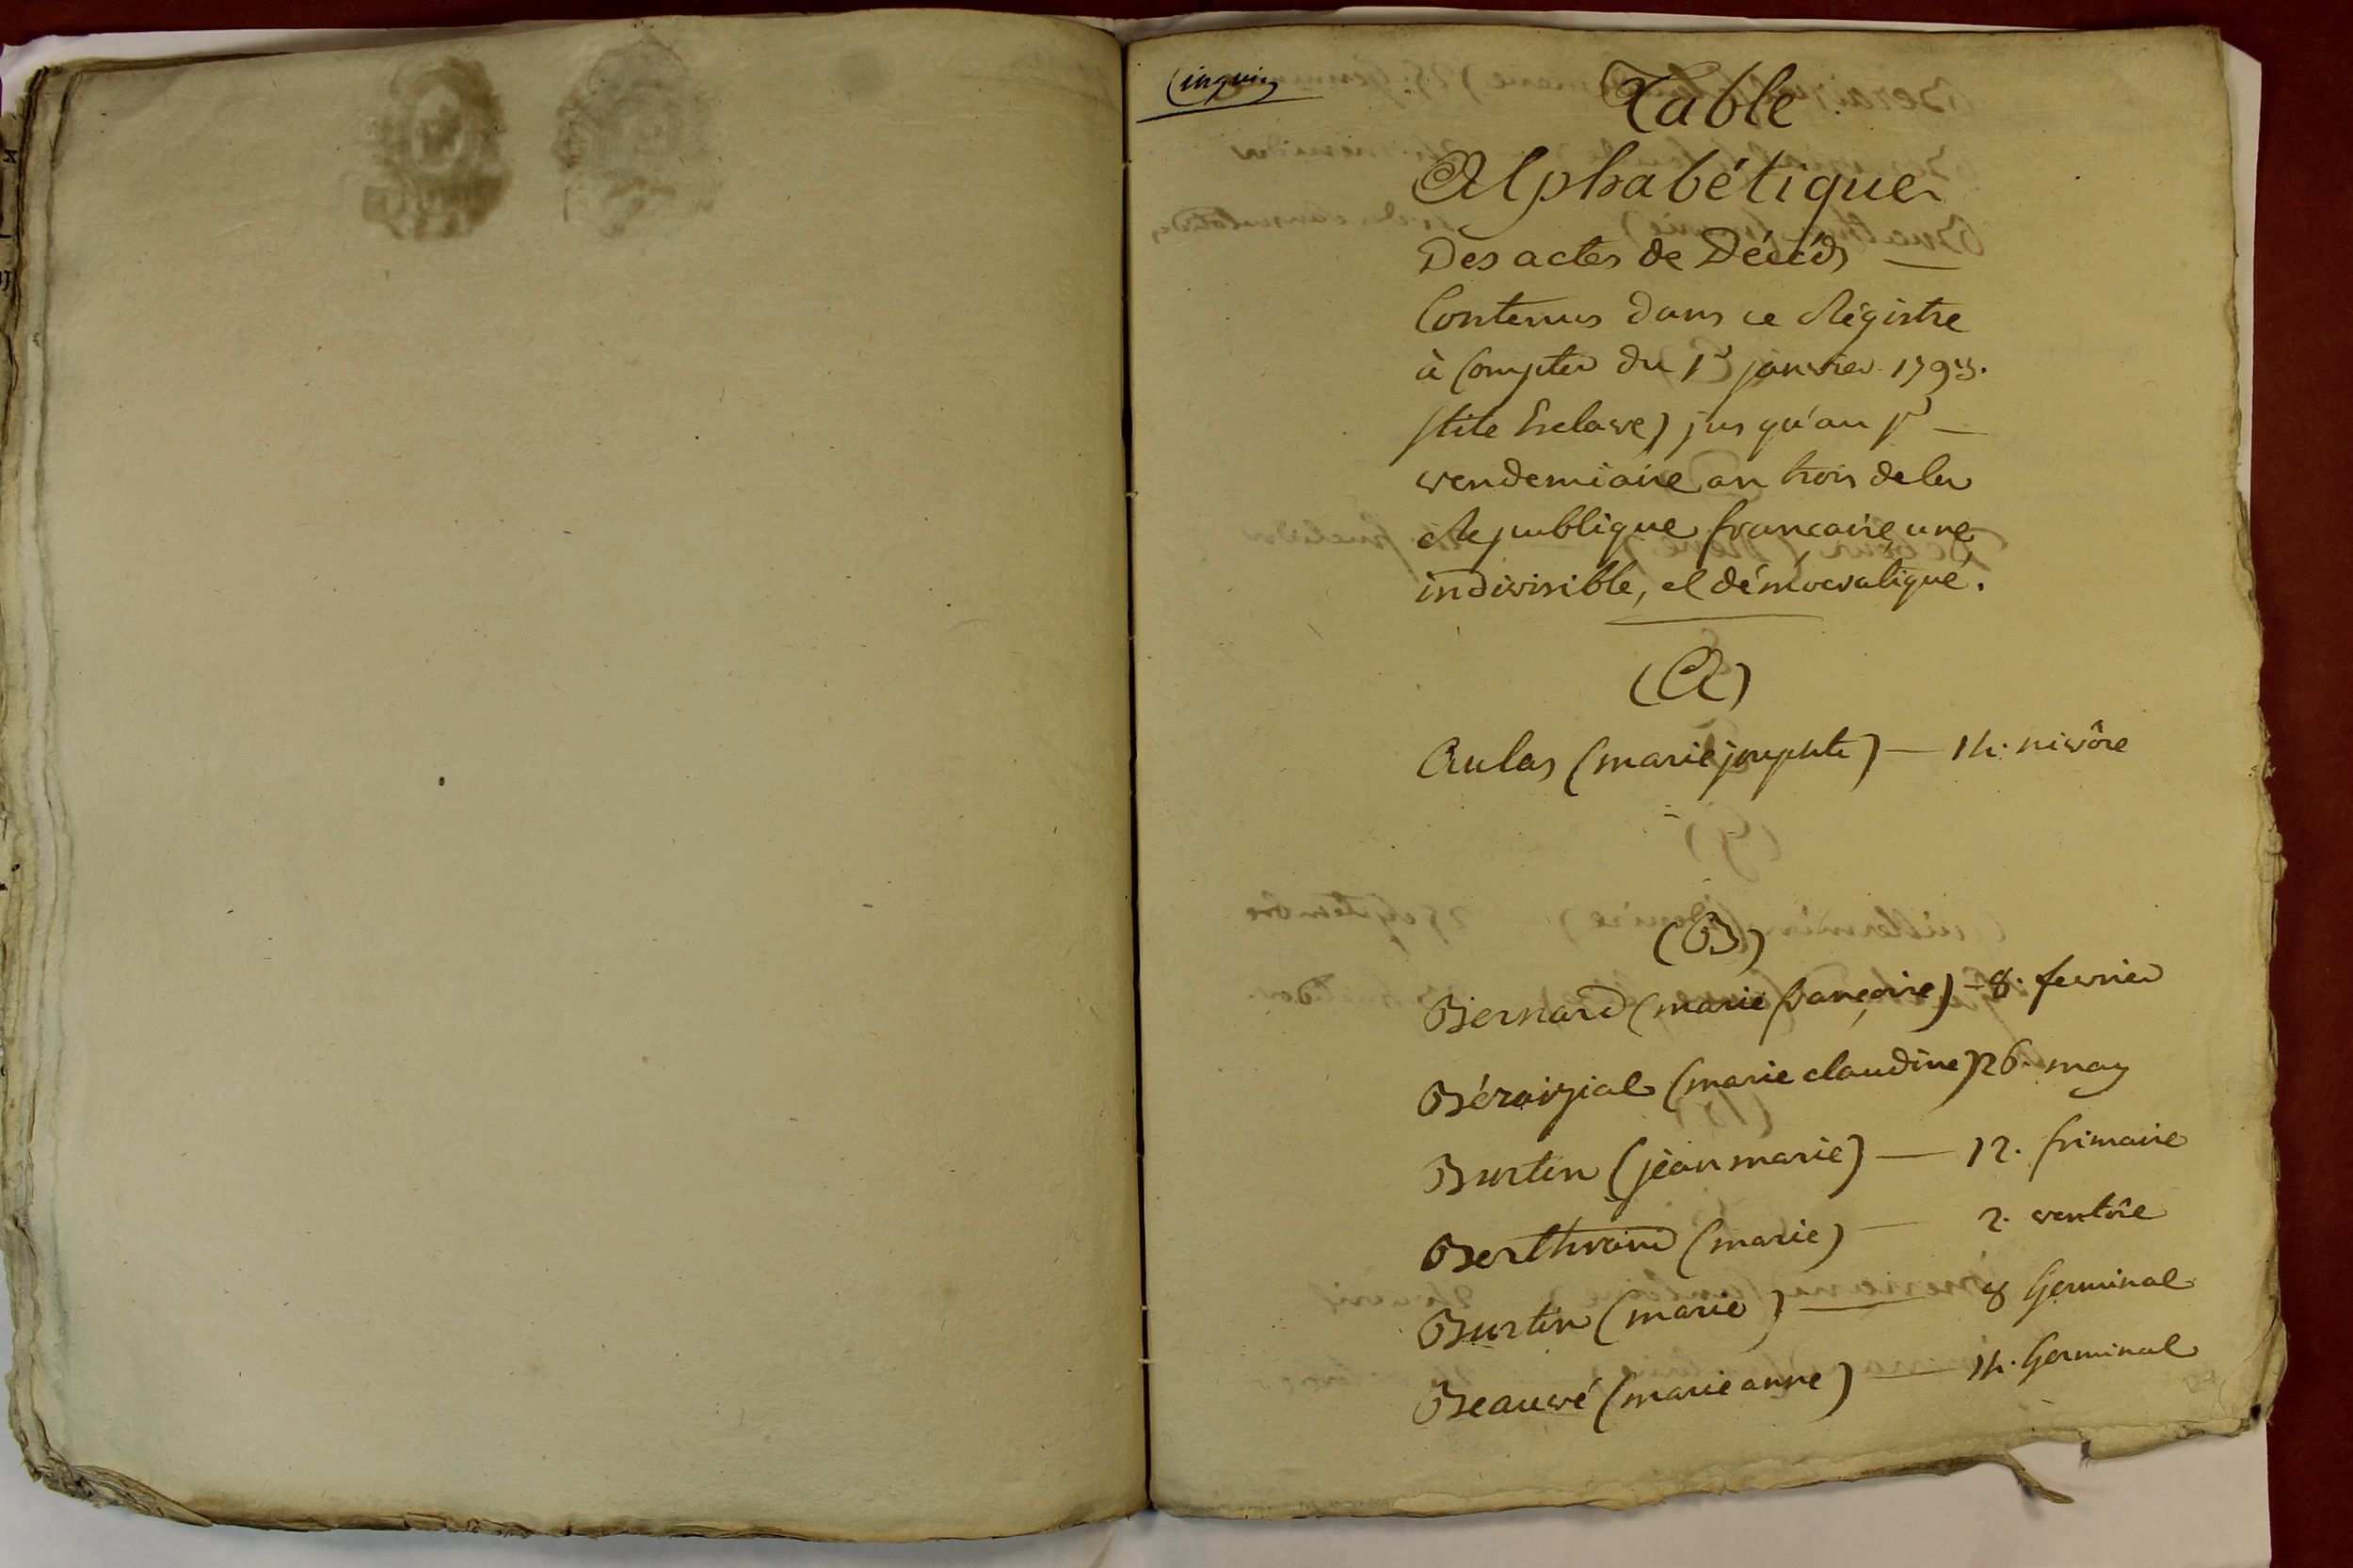 Cinquin
Table
Alphabétique
Des actes de Décéds —
Contenus dans ce Régistre
à Compter du 1r janvier 1793.
(stile Esclave) jusqu'au 1r —
vendemiaire an trois de la
Republique francaise, une
indivisible, et démocratique.
(A)
Aulas (marie josephte) — 14. nivôse
(B)
Bernard (marie françoise) — 8. fevrier
Béroizial (marie claudine) 26. may
Burtin (jean marie) — 12. frimaire
(marie) — 2. ventôse
Burtin (marie) — 8 Germinal
Beauvé (marie anne) — 14. Germinal